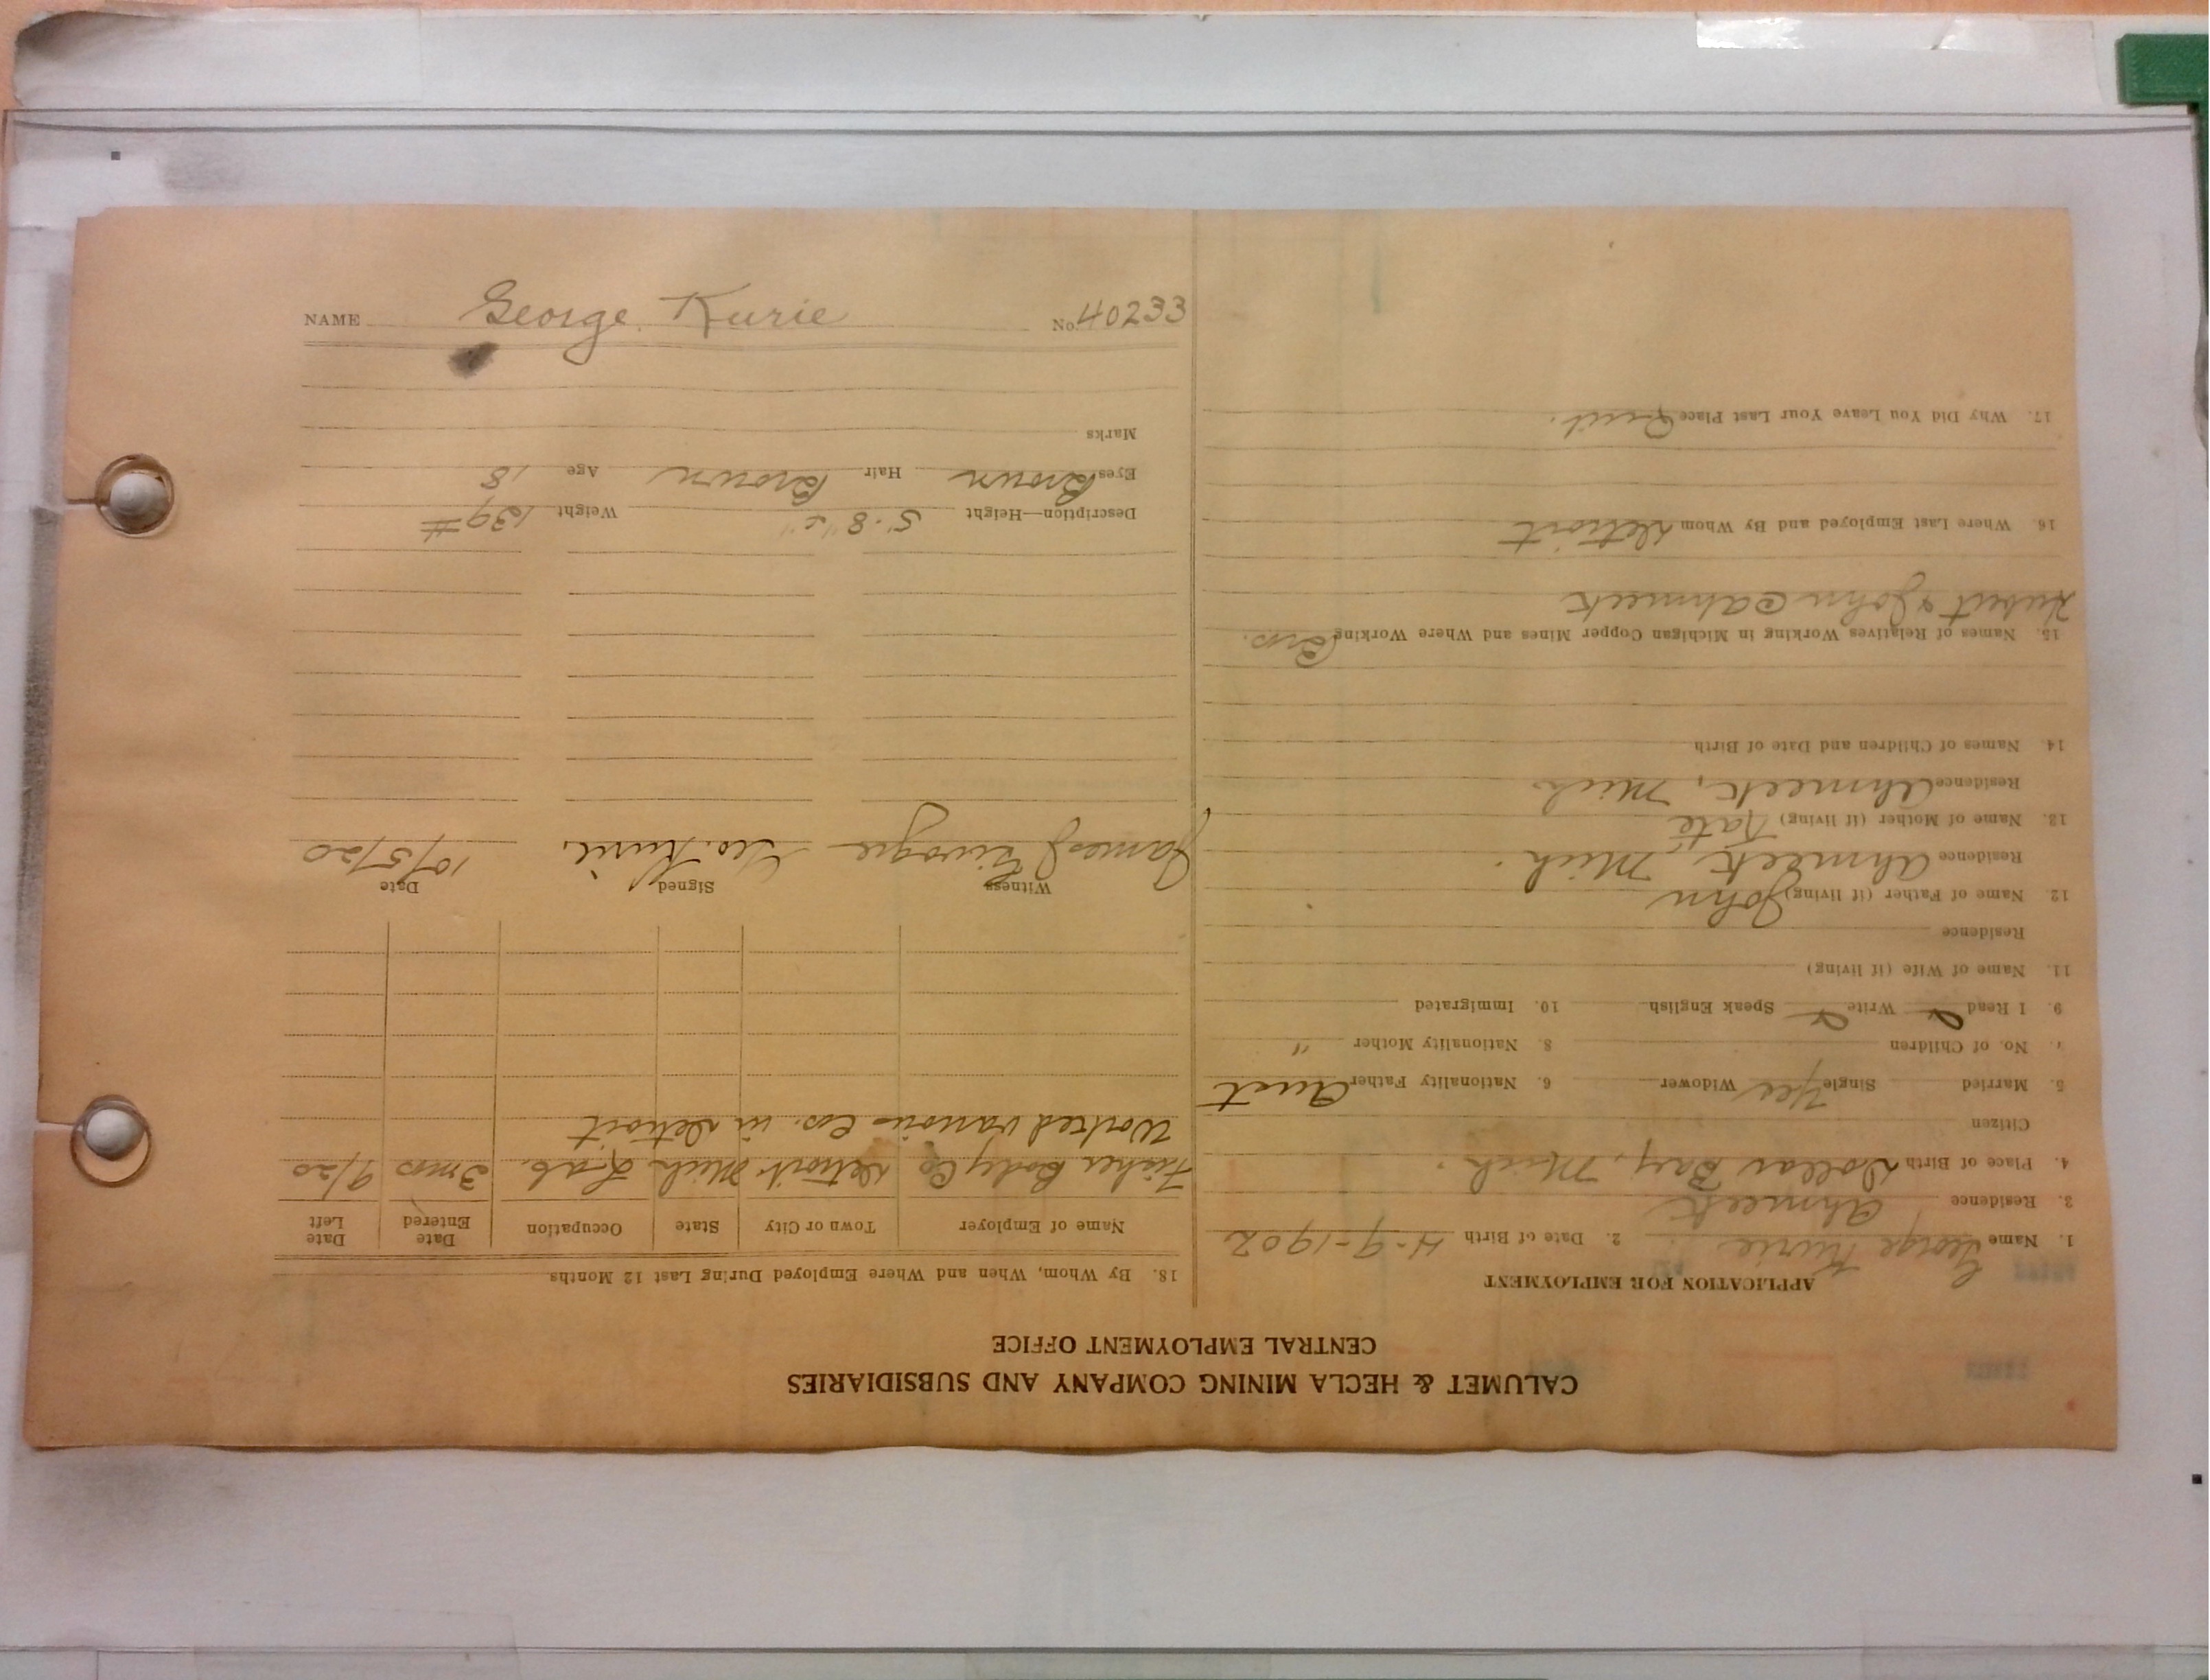 CALUMET & HECLA MINING COMPANY AND SUBSIDIARIES
CENTRAL EMPLOYMENT OFFICE
APPLICATION FOR EMPLOYMENT
1. Name George Kurie 2. Date of Birth 4-9-1902
3. Residence Ahmeek
4. Place of Birth Dollar Bay, Mich.
Citizen
5. Married Single Yes Widower 6. Nationality Father Aust
7. No. of Children 8. Nationality Mother "
9. I Read Write Speak English 10. Immigrated
11. Name of Wife (if living)
Residence
12. Name of Father (if living) John
Residence Ahmeek, Mich.
13. Name of Mother (if living) Kate
Residence Ahmeek, Mich
14. Names of Children and Date of Birth
15. Names of Relatives Working in Michigan Copper Mines and Where Working Bros.
Hubert & John Ahmeek
16. Where Last Employed and By Whom Detroit
17. Why Did You Leave Your Last Place Quit.
18. By Whom, When and Where Employed During Last 12 Months
Name of Employer Town or City State Occupation Date Entered Date Left
Fisher Body Co Detroit Mich Lab. 3 mos 9/20
Worked various Cos. in Detroit
Witness Signed Date
James J Geo. Kurie. 10/5/20
Description—Height 5-8 Weight 139#
Eyes Brown Hair Brown Age 18
Marks
NAME George Kurie No. 40233